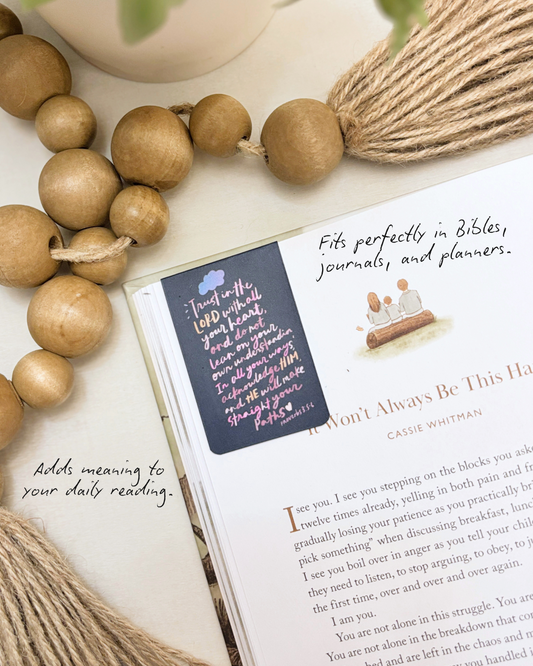 Fits perfectly in Bibles,
journals, and planners.
Trust in the
LORD with all
your heart,
and do not
lean on your
own understandin
In all your ways
acknowledge HIM
and HE will make
straight your
Paths
PROVERBS 3:5-6
It Won't Always Be This Ha
CASSIE WHITMAN
Adds meaning to
your daily reading.
I see you. I see you stepping on the blocks you aske
twelve times already, yelling in both pain and fr
gradually losing your patience as you practically br
pick something" when discussing breakfast, lunc
I see you boil over in anger as you tell your chil
they need to listen, to stop arguing, to obey, to ju
the first time, over and over and over again.
I am you.
You are not alone in this struggle. You are
You are not alone in the breakdown that con
and are left in the chaos and m
you handled i